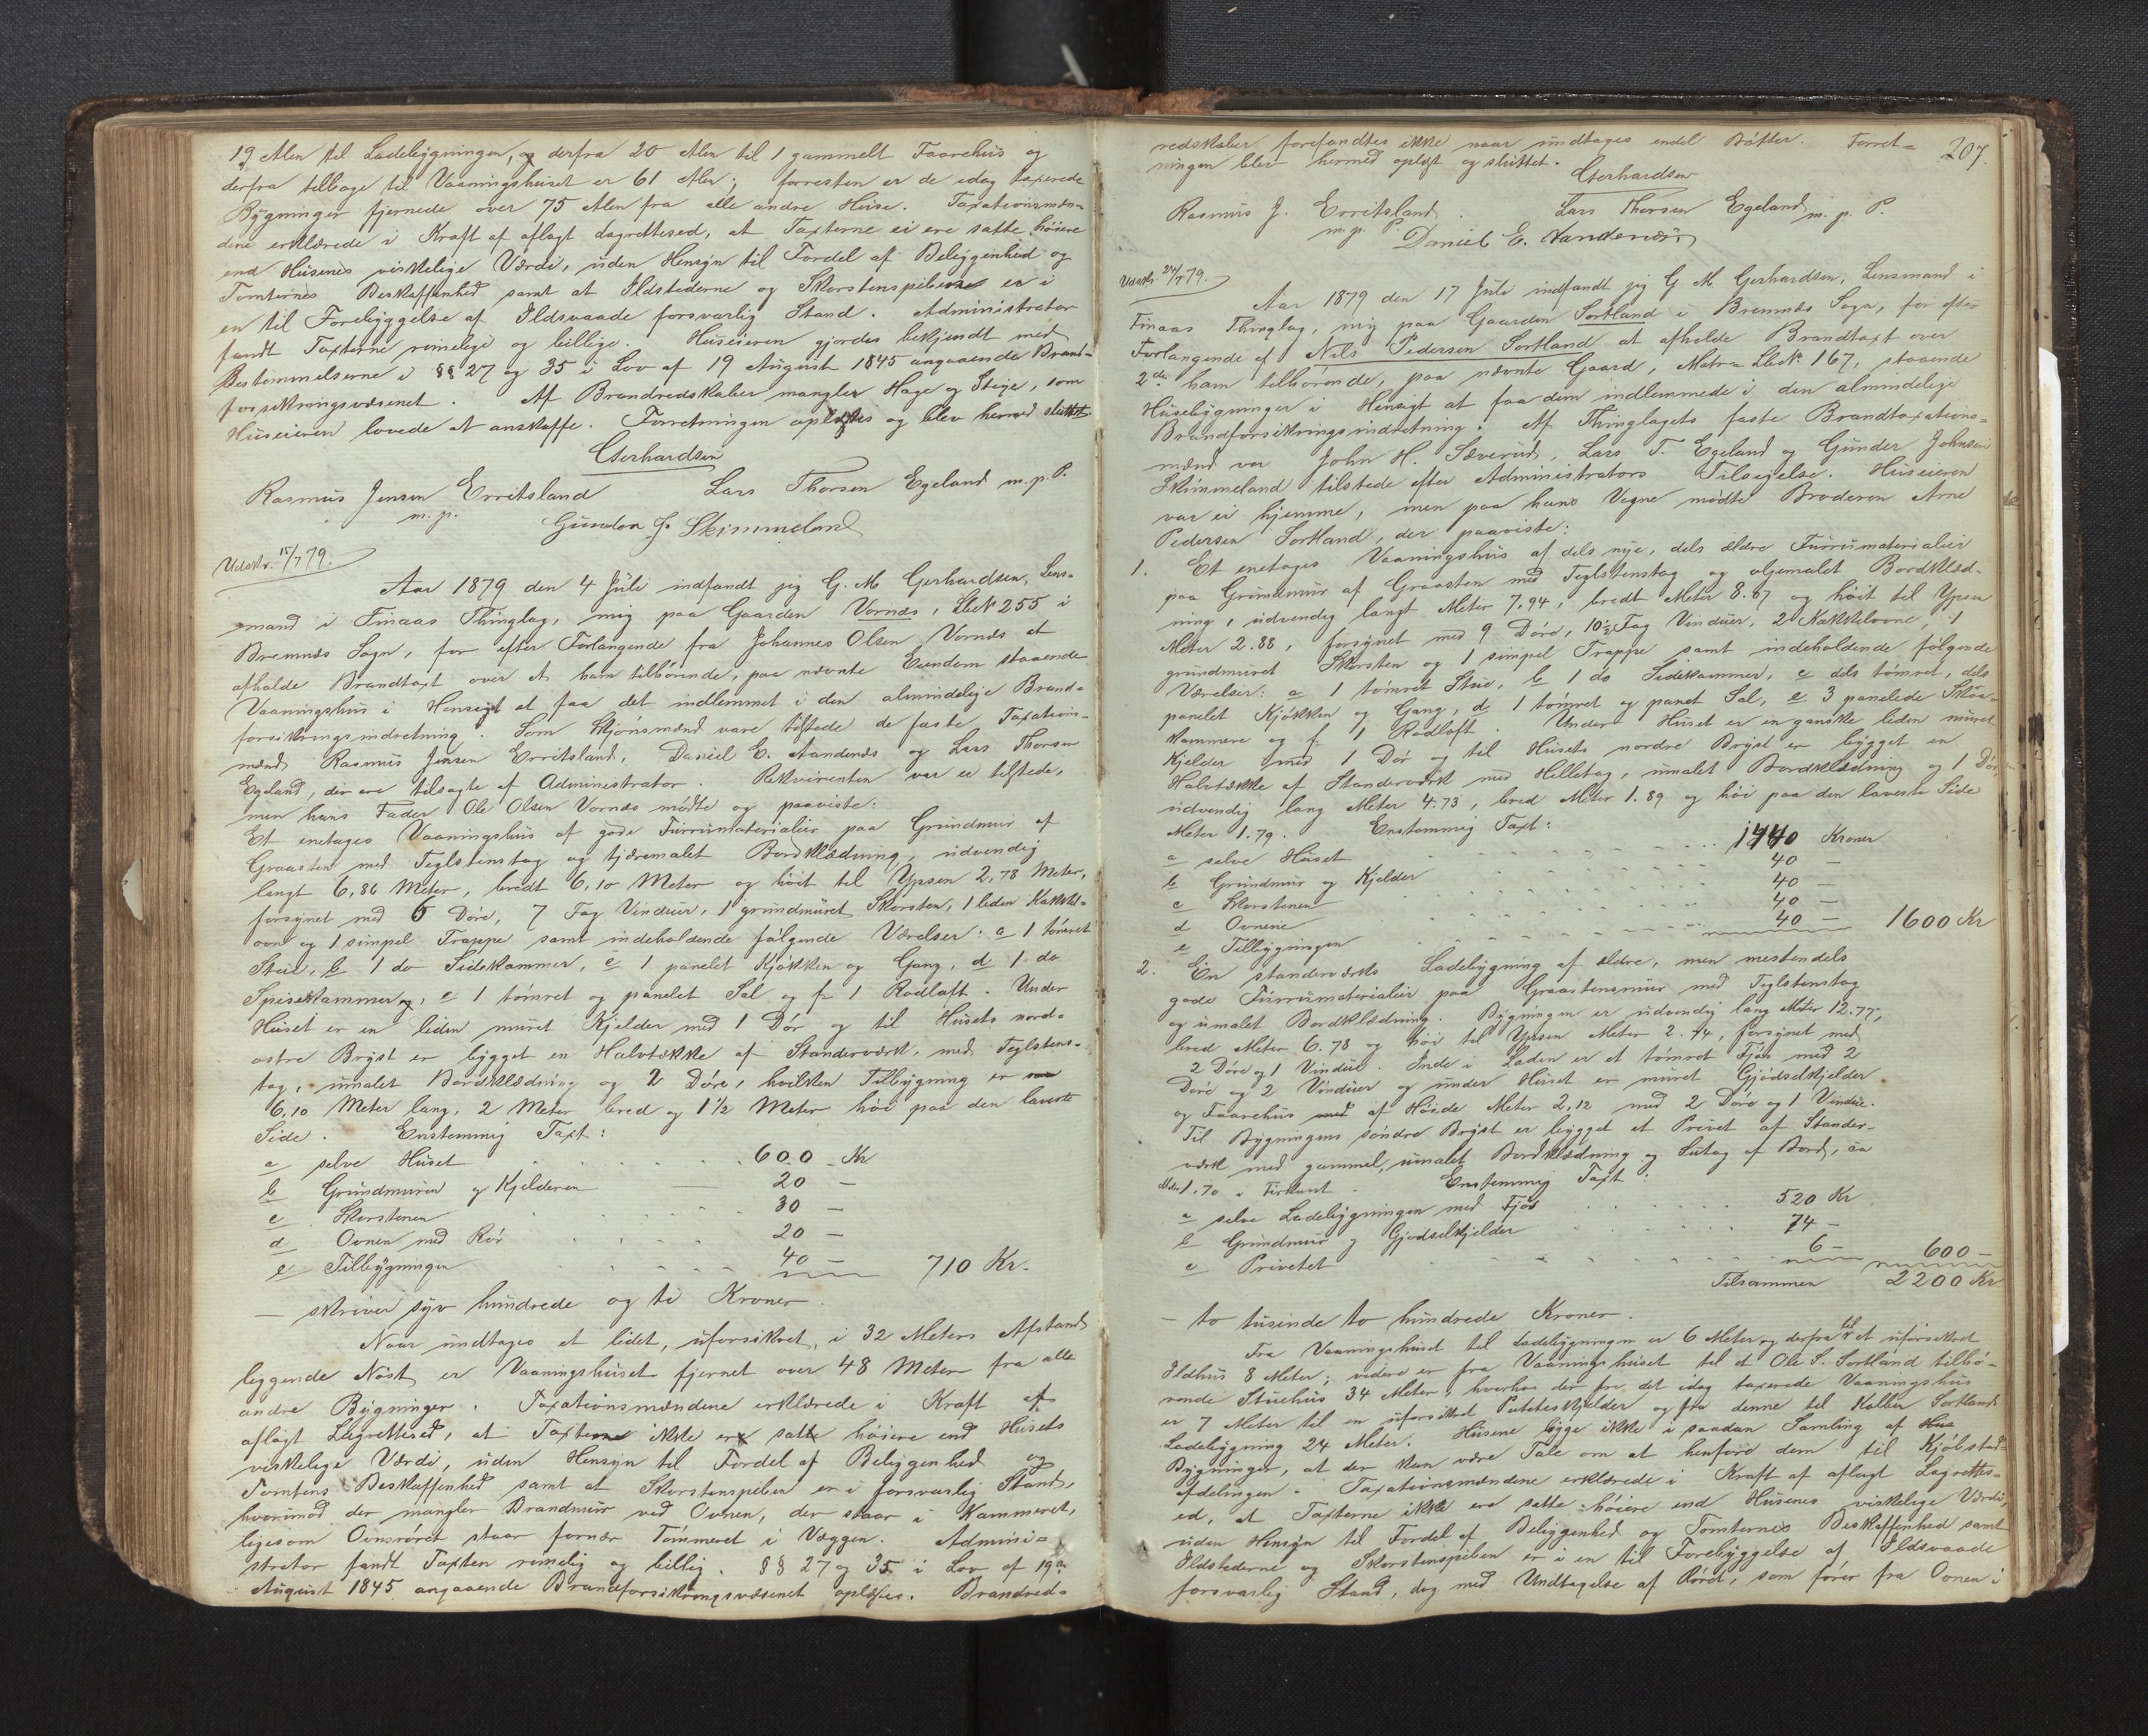 19 Alen til Ladebygningen, og derfra 20 Alen til 1 gammelt Faarehus og
derfra tilbage til Vaaningshuset er 61 Alen; forresten er de idag taxerede
Bygninger fjernede over 75 Alen fra alle andre Huse. Taxationsmæn-
dene erklærede i Kraft af aflagt Lagrettesed, at Taxterne ei ere satte høiere
end Husenes virkelige Værdi, uden Hensyn til Fordel af Beliggenhed og
Tomternes Beskaffenhed samt at Ildstederne og Skorstenspiberne er i
en til Forebyggelse af Ildsvaade forsvarlig Stand. Administrator
fandt Taxterne rimelige og billige. Huseieren gjordes bekjendt med
Bestemmelserne i §§ 27 og 35 i Lov af 19 August 1845 angaaende Brand-
forsikringsvæsenet. Af Brandredskaber mangler Hage og Stige, som
Huseieren lovede at anskaffe. Forretningen oplæstes og blev hermed sluttet.
Gerhardsen
Rasmus Jensen Erritsland Lars Thorsen Egeland m.p.P.
m.p. Gunder J. Skimmeland
Udskr. 15/7 79.
Aar 1879 den 4 Juli indfandt jeg G. M Gerhardsen, Lens-
mand i Finaas Thinglag, mig paa Gaarden Vornæs, LbN 255 i
Bremnæs Sogn, for efter Forlangende fra Johannes Olsen Vornæs at
afholde Brandtaxt over et ham tilhørende, paa nævnte Eiendom staaende
Vaaningshus i Hensigt at faa det indlemmet i den almindelige Brand-
forsikringsindretning. Som Skjønsmænd vare tilstede de faste Taxations-
mænd Rasmus Jensen Erritsland, Daniel E. Aandenæs og Lars Thorsen
Egeland, der ere tilsagte af Administrator. Rekvirenten var ei tilstede,
men hans Fader Ole Olsen Vornæs mødte og paaviste:
Et enetages Vaaningshus af gode Furrumaterialier paa Grundmur af
Graasten med Teglstenstag og tjæremalet Bordklædning, udvendig
langt 6,86 Meter, bredt 6,10 Meter og høit til Ypsen 2,78 Meter,
forsynet med 6 Døre, 7 Fag Vinduer, 1 grundmuret Skorsten, 1 liden Kakkel-
ovn og 1 simpel Trappe samt indeholdende følgende Værelser: a 1 tømret
Stue, b 1 do Sidekammer, c 1 panelet Kjøkken og Gang, d 1 do
Spisekammer og, e 1 tømret og panelet Sal og f 1 Rodloft. Under
Huset er en liden muret Kjelder med 1 Dør og til Husets nord-
østre Bryst er bygget en Halvtække af Standerværk, med Teglstens-
tag, umalet Bordklædning og 2 Døre, hvilken Tilbygning er
6,10 Meter lang, 2 Meter bred og 1½ Meter høi paa den laveste
Side. Enstemmig Taxt:
a selve Huset . . . . . 600 - Kr
b Grundmuren og Kjelderen — 20 —
c Skorstenen . . . . 30 —
d Ovnen med Rør . . . . 20 —
e Tilbygningen . . . . . 40 — 710 Kr.
— skriver syv hundrede og ti Kroner.
Naar undtages et lidet, uforsikret, i 32 Meters Afstand
liggende Nøst, er Vaaningshuset fjernet over 48 Meter fra alle
andre Bygninger. Taxationsmændene erklærede i Kraft af
aflagt Lagrettesed, at Taxterne ikke ere satte høiere end Husets
virkelige Værdi, uden Hensyn til Fordel af Beliggenhed og
Tomtens Beskaffenhed samt at Skorstenspiben er i forsvarlig Stand,
hvorimod der mangler Brandmur ved Ovnen, der staar i Kammeret,
ligesom Ovnsrøret staar fornær Tømmeret i Væggen. Admini-
strator fandt Taxten rimelig og billig. §§ 27 og 35 i Lov af 19de
August 1845 angaaende Brandforsikringsvæsenet oplæstes. Brandred-
207.
redskaber forefandtes ikke naar undtages endel Bøtter. Forret-
ningen blev hermed oplæst og sluttet.
Gerhardsen
Rasmus J. Erritsland. Lars Thorsen Egeland m. p. P.
m. p. P. Daniel E. Aandenæs
Udskr 24/7 79.
Aar 1879 den 17 Juli indfandt jeg G M. Gerhardsen, Lensmand i
Finaas Thinglag, mig paa Gaarden Sortland i Bremnæs Sogn, for efter
Forlangende af Nils Pedersen Sortland at afholde Brandtaxt over
2de ham tilhørende, paa nævnte Gaard, Matr- LbN 167, staaende
Husebygninger i Hensigt at faa dem indlemmede i den almindelige
Brandforsikringsindretning. Af Thinglagets faste Brandtaxations-
mænd var John H. Sæverud, Lars T. Egeland og Gunder Johnsen
Skimmeland tilstede efter Administrators Tilsigelse. Huseieren
var ei hjemme, men paa hans Vegne mødte Broderen Arne
Pedersen Sortland, der paaviste:
1. Et enetages Vaaningshus af dels nye, dels ældre Furrumaterialier
paa Grundmur af Graasten med Teglstenstag og oljemalet Bordklæd-
ning, udvendig langt Meter 7.94, bredt Meter 8.67 og høit til Ypsen
Meter 2.88, forsynet med 9 Døre, 10½ Fag Vinduer, 2 Kakkelovne, 1
grundmuret Skorsten og 1 simpel Trappe samt indeholdende følgende
Værelser: a 1 tømret Stue, b 1 do Sidekammer, c dels tømret, dels
panelet Kjøkken og Gang, d 1 tømret og panet Sal, e 3 panelede Smaa-
kammere og f 1 Rodloft. Under Huset er en ganske liden muret
Kjelder med 1 Dør og til Husets nordre Bryst er bygget en
Halvtække af Standerværk med Helletag, umalet Bordklædning og 1 Dør,
udvendig lang Meter 4.73, bred Meter 1.89 og høi paa den laveste Side
Meter 1.79. Enstemmig Taxt:
a selve Huset . . . . . 1440 Kroner
b Grundmur og Kjelder . . . . . 40 —
c Skorstenen . . . . . 40 —
d Ovnene . . . . . 40 —
e Tilbygningen . . . . . 40 — 1600 Kr
2. En standerværks Ladebygning af ældre, men mestendels
gode Furrumaterialier paa Graastensmur med Teglstenstag
og umalet Bordklædning. Bygningen er udvendig lang Meter 12.77,
bred Meter 6.78 og høi til Ypsen Meter 2.44, forsynet med
2 Døre og 1 Vindue. Inde i Laden er et tømret Fjøs med 2
Døre og 2 Vinduer og under Huset er muret Gjødselkjelder
og Faarehus med af Høide Meter 2,12 med 2 Døre og 1 Vindue.
Til Bygningens søndre Bryst er bygget et Privet af Stander-
værk med gammel, umalet Bordklædning og Sutag af Bord, ca
Meter 1.70 i Firkant. Enstemmig Taxt:
a selve Ladebygningen med Fjøs . . . . . 520 Kr
b Grundmur og Gjødselkjelder . . . . . 74 —
c Privetet . . . . . 6 — 600 —
Tilsammen 2200 Kr
— to tusinde to hundrede Kroner.
Fra Vaaningshuset til Ladebygningen er 6 Meter og derfra til et uforsikret
Ildhus 8 Meter; videre er fra Vaaningshuset til et Ole S. Sortland tilhø-
rende Stuehus 34 Meter, hvorhos der fra det idag taxerede Vaaningshus
er 7 Meter til en uforsikret Poteteskjelder og fra denne til Kolbein Sortlands
Ladebygning 24 Meter. Husene ligge ikke i saadan Samling af Hus
Bygninger, at der kan være Tale om at henføre dem til Kjøbstad-
afdelingen. Taxationsmændene erklærede i Kraft af aflagt Lagrettes-
ed, at Taxterne ikke ere satte høiere end Husenes virkelige Værdi,
uden Hensyn til Fordel af Beliggenhed og Tomternes Beskaffenhed samt
Ildstederne og Skorstenspiben er i en til Forebyggelse af Ildsvaade
forsvarlig Stand, dog med Undtagelse af Røret, som fører fra Ovnen i